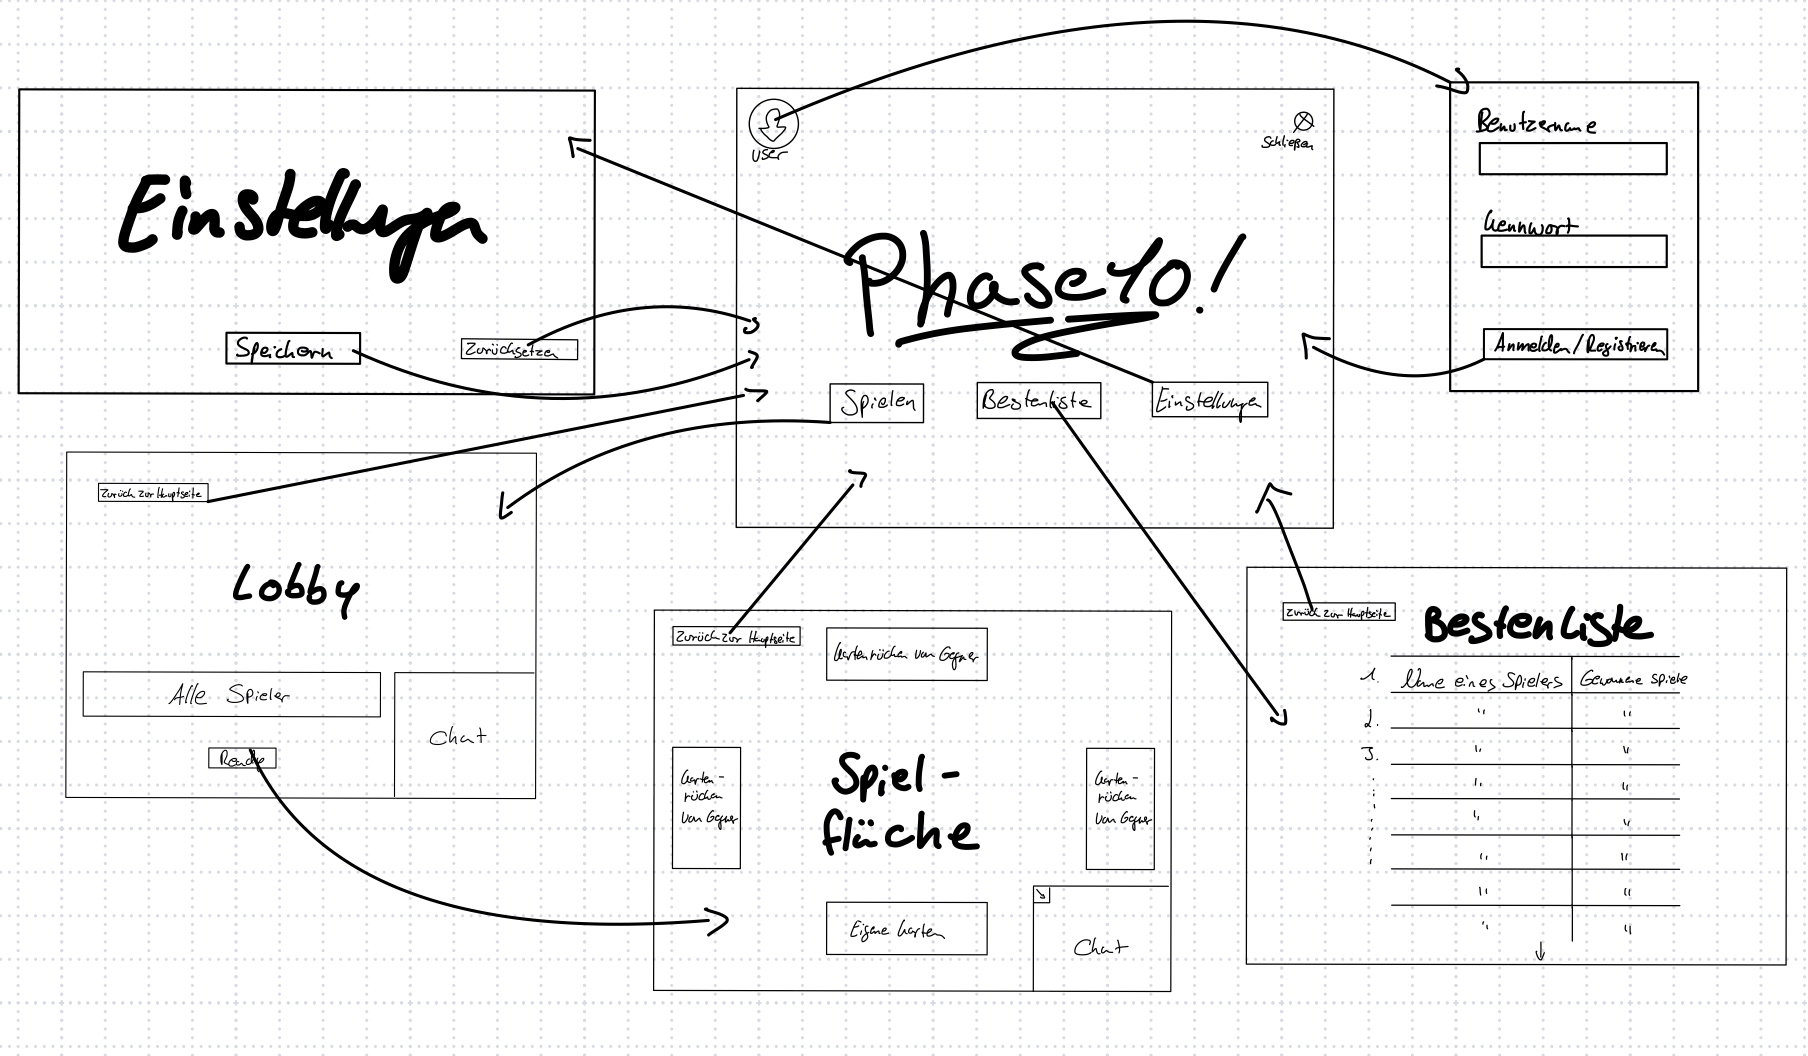 Einstellungen
Speichern
Zurücksetzen
user
Schließen
Phase 10!
Spielen
Bestenliste
Einstellungen
Benutzername
Kennwort
Anmelden/Registrieren
Zurück zur Hauptseite
Lobby
Alle Spieler
Chat
Ready
Zurück zur Hauptseite
Kartenrücken von Gegner
Karten-
rücken
von Gegner
Spiel-
fläche
Karten-
rücken
von Gegner
Eigene Karten
Chat
Zurück zur Hauptseite
Bestenliste
1. Name eines Spielers Gewonnene Spiele
2. " "
3. " "
" "
" "
" "
" "
" "